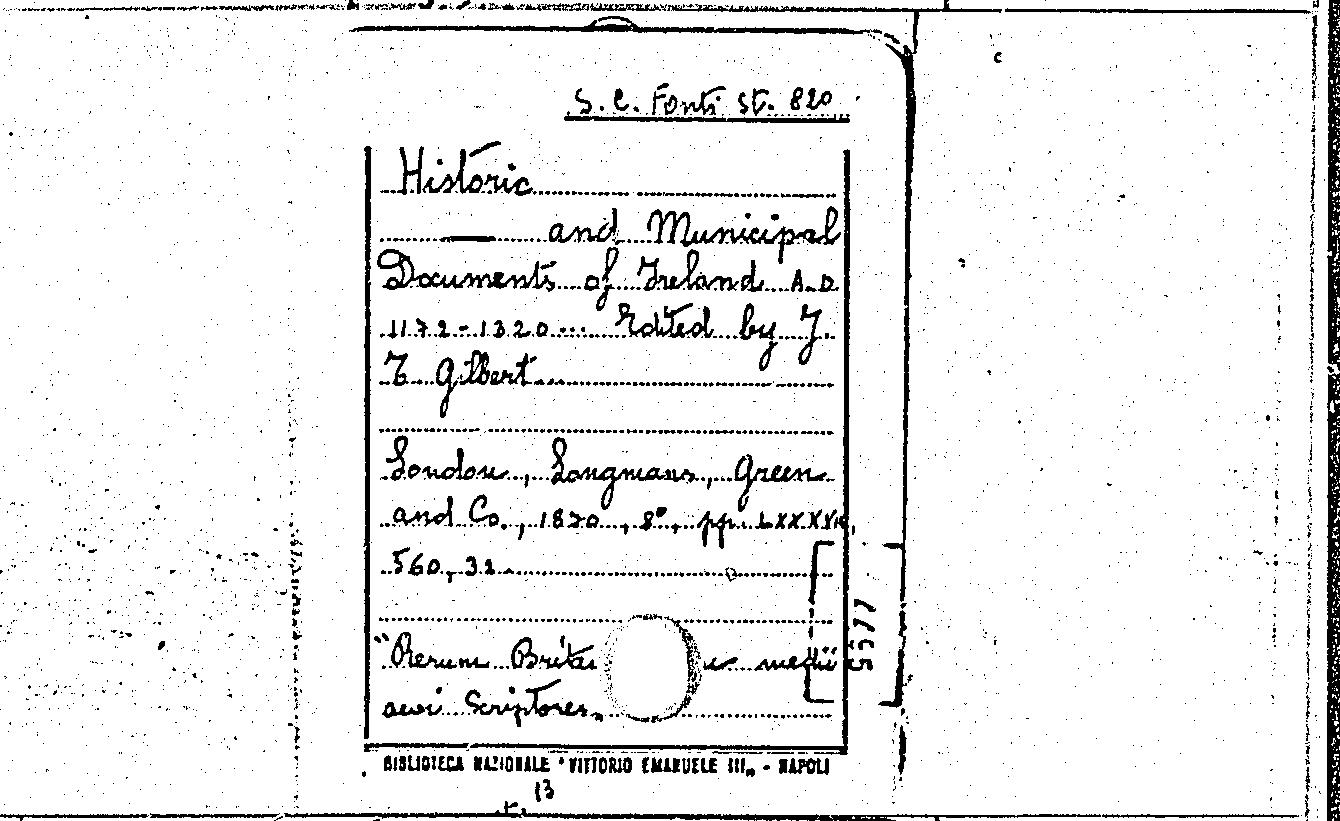 S. C. Fonti St. 820
Historic
— and Municipal
Documents of Ireland A.D
1172-1320... Edited by J.
T Gilbert...
London, Longmans, Green
and Co., 1870, 8°, pp. LXXXVII,
560, 32
5577
"Rerum Brita medii
aevi Scriptores„
BIBLIOTECA NAZIONALE "VITTORIO EMANUELE III„ - NAPOLI
13